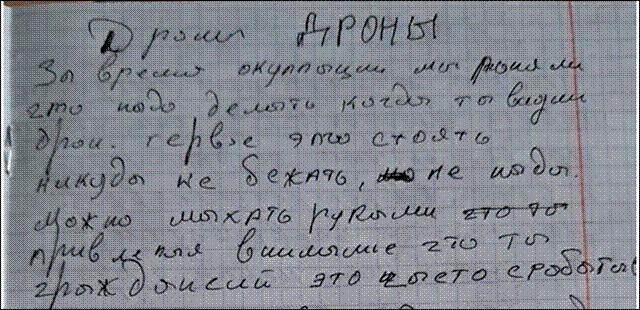 Дроны ДРОНЫ
За время окуппации мы поняли
что надо делать когда ты видиш
дрон. первое это стоять
никуда не бежать, не нада.
можно махать руками что ты
привлекая внимание что ты
гражданский это часто сработы